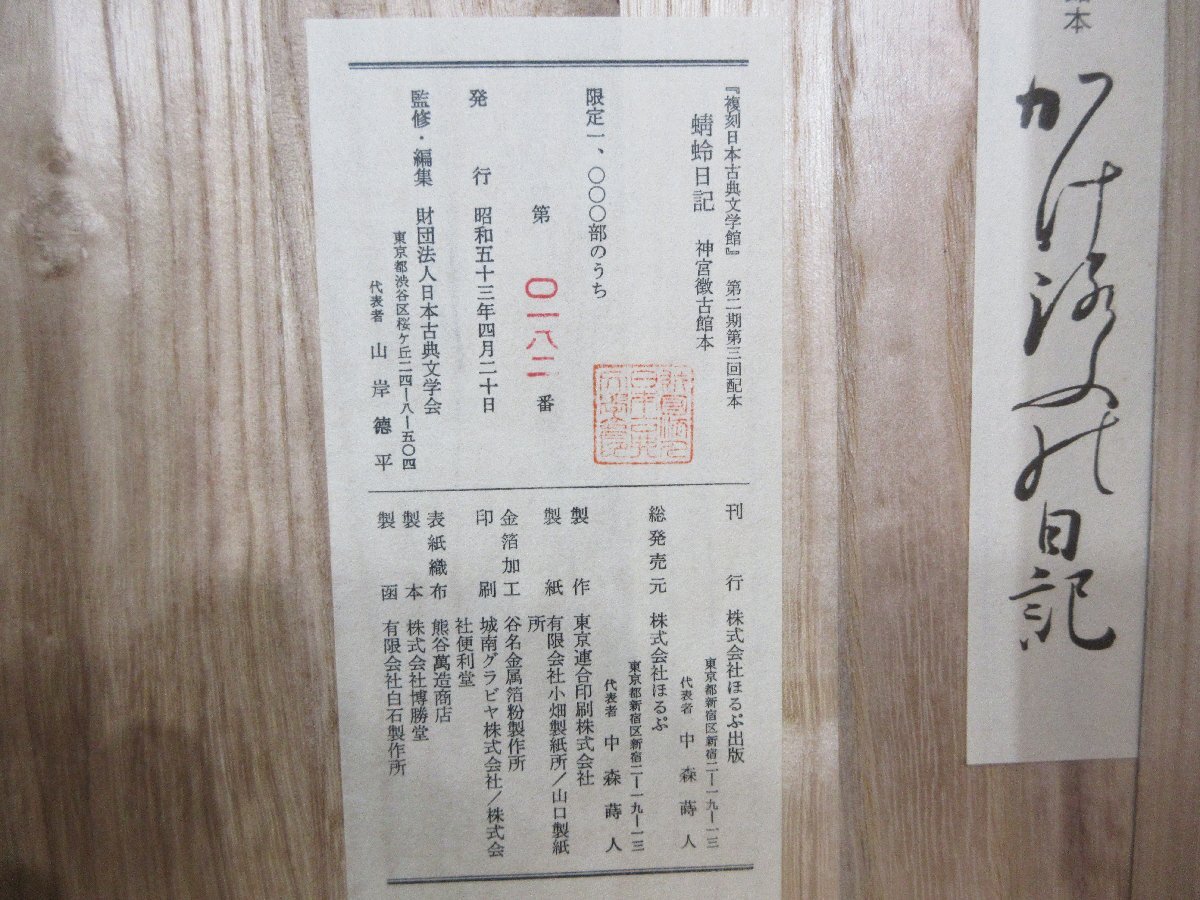 館本
かけろふの日記
『複刻日本古典文学館』 第二期第三回配本
蜻蛉日記 神宮徴古館本
限定一、〇〇〇部のうち
第 〇一八二 番
発行 昭和五十三年四月二十日
監修・編集 財団法人日本古典文学会
東京都渋谷区桜ケ丘二四ー八ー五〇四
代表者 山岸徳平
刊行 株式会社ほるぷ出版
東京都新宿区新宿二ー一九ー一三
代表者 中森蒔人
総発売元 株式会社ほるぷ
東京都新宿区新宿二ー一九ー一三
代表者 中森蒔人
製作 東京連合印刷株式会社
製紙 有限会社小畑製紙所/山口製紙
所
金箔加工 谷名金属箔粉製作所
印刷 城南グラビヤ株式会社/株式会
社便利堂
表紙織布 熊谷萬造商店
製本 株式会社博勝堂
製函 有限会社白石製作所